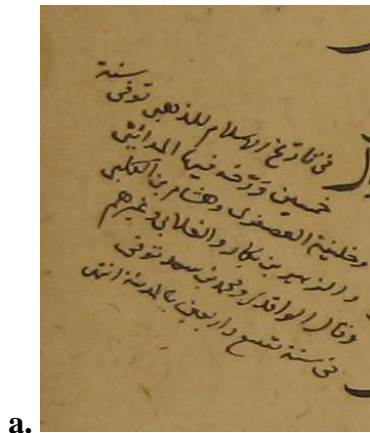 في تاريخ الإسلام للذهبي توفى سنة
خمسين ورّخه فيها المدائني
وخليفة العصفري وهشام بن الكلبي
والزبير بن بكار والغلابي وغيرهم
وقال الواقدي ومحمد بن سعد توفى
في سنة تسع واربعين بالمدينة انتهى
a.